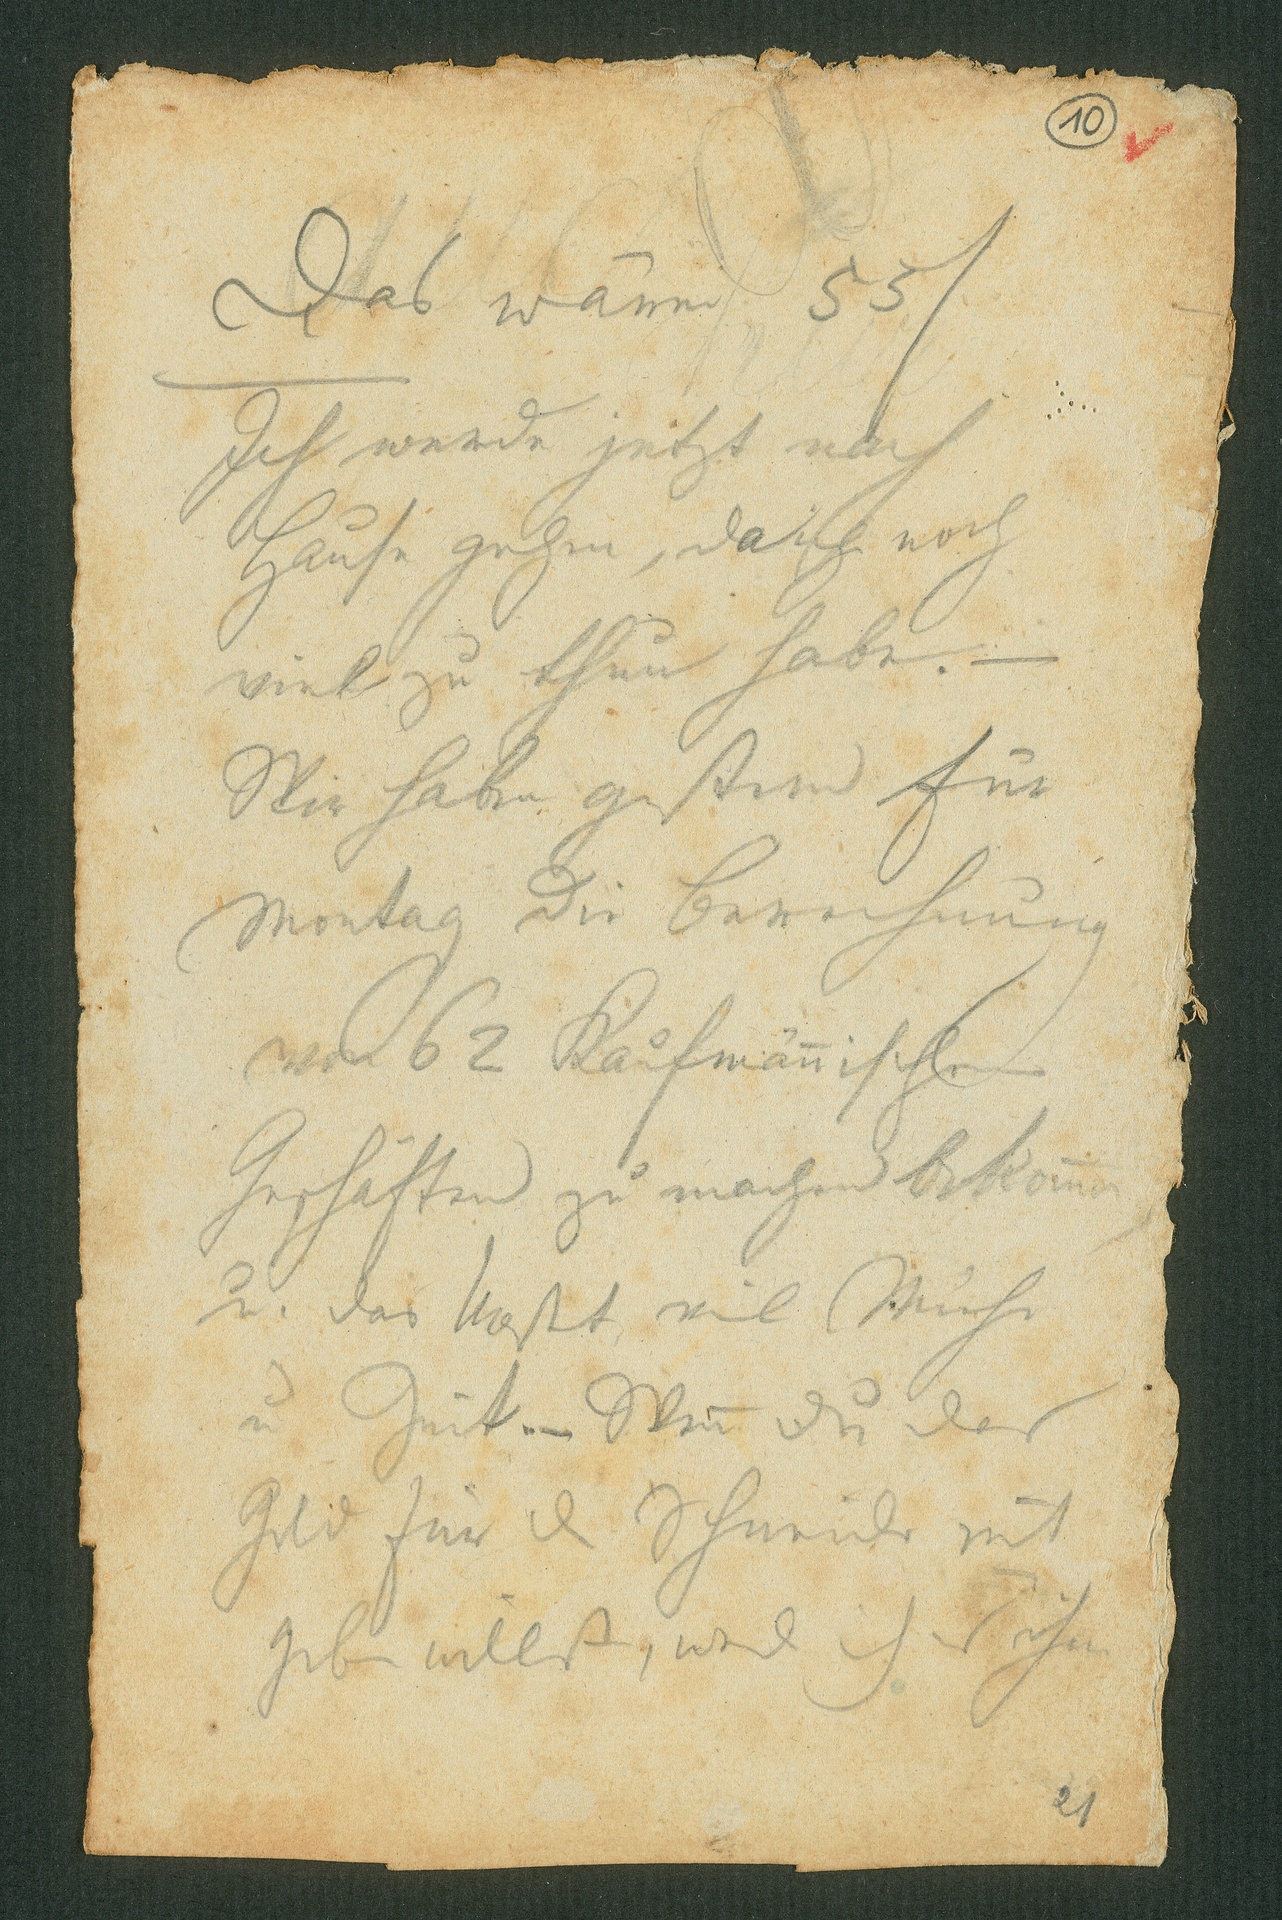 10
Das wären 55 f
Ich werde jetzt nach
Hause gehen, da ich noch
viel zu thun habe. —
Wir haben gestern für
Montag die Berechnung
von 62 kaufmännischen
Geschäften zu machen bekom̄en
u. das kostet viel Mühe
u Zeit. — Wen̄ du das
Geld für d Schneider mit
geben willst, werd ich es ihm
21